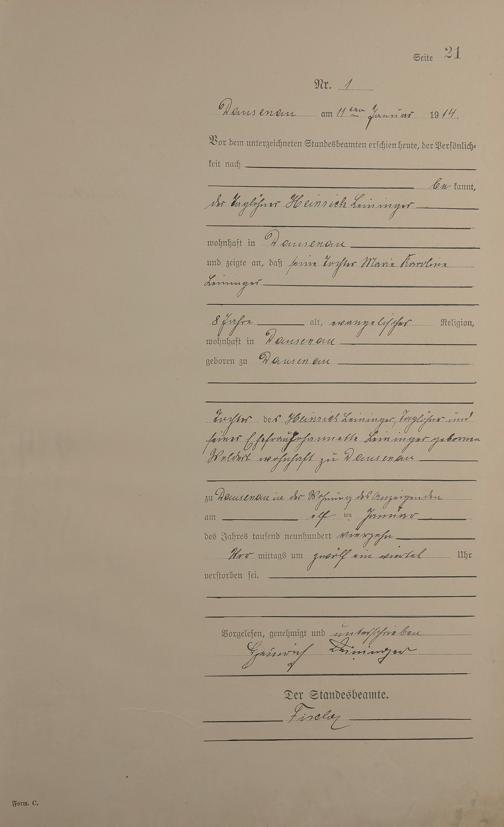 Seite 21
Nr. 1
Dausenau am 11ten Januar 1914.
Vor dem unterzeichneten Standesbeamten erschien heute, der Persönlich-
keit nach
be kannt,
der Taglöhner Heinrich Leininger
wohnhaft in Dausenau
und zeigte an, daß seine Tochter Marie Karoline
Leininger
8 Jahre alt, evangelischer Religion,
wohnhaft in Dausenau
geboren zu Dausenau
Tochter des Heinrich Leininger, Taglöhner und
seiner Ehefrau Johannette Leininger geborenen
wohnhaft zu Dausenau
zu Dausenau in der Wohnung des Anzeigenden
am elf ten Januar
des Jahres tausend neunhundert vierzehn
Vor mittags um zwölf ein viertel Uhr
verstorben sei.
Vorgelesen, genehmigt und unterschrieben
Heinrich Leininger
Der Standesbeamte.
Form. C.